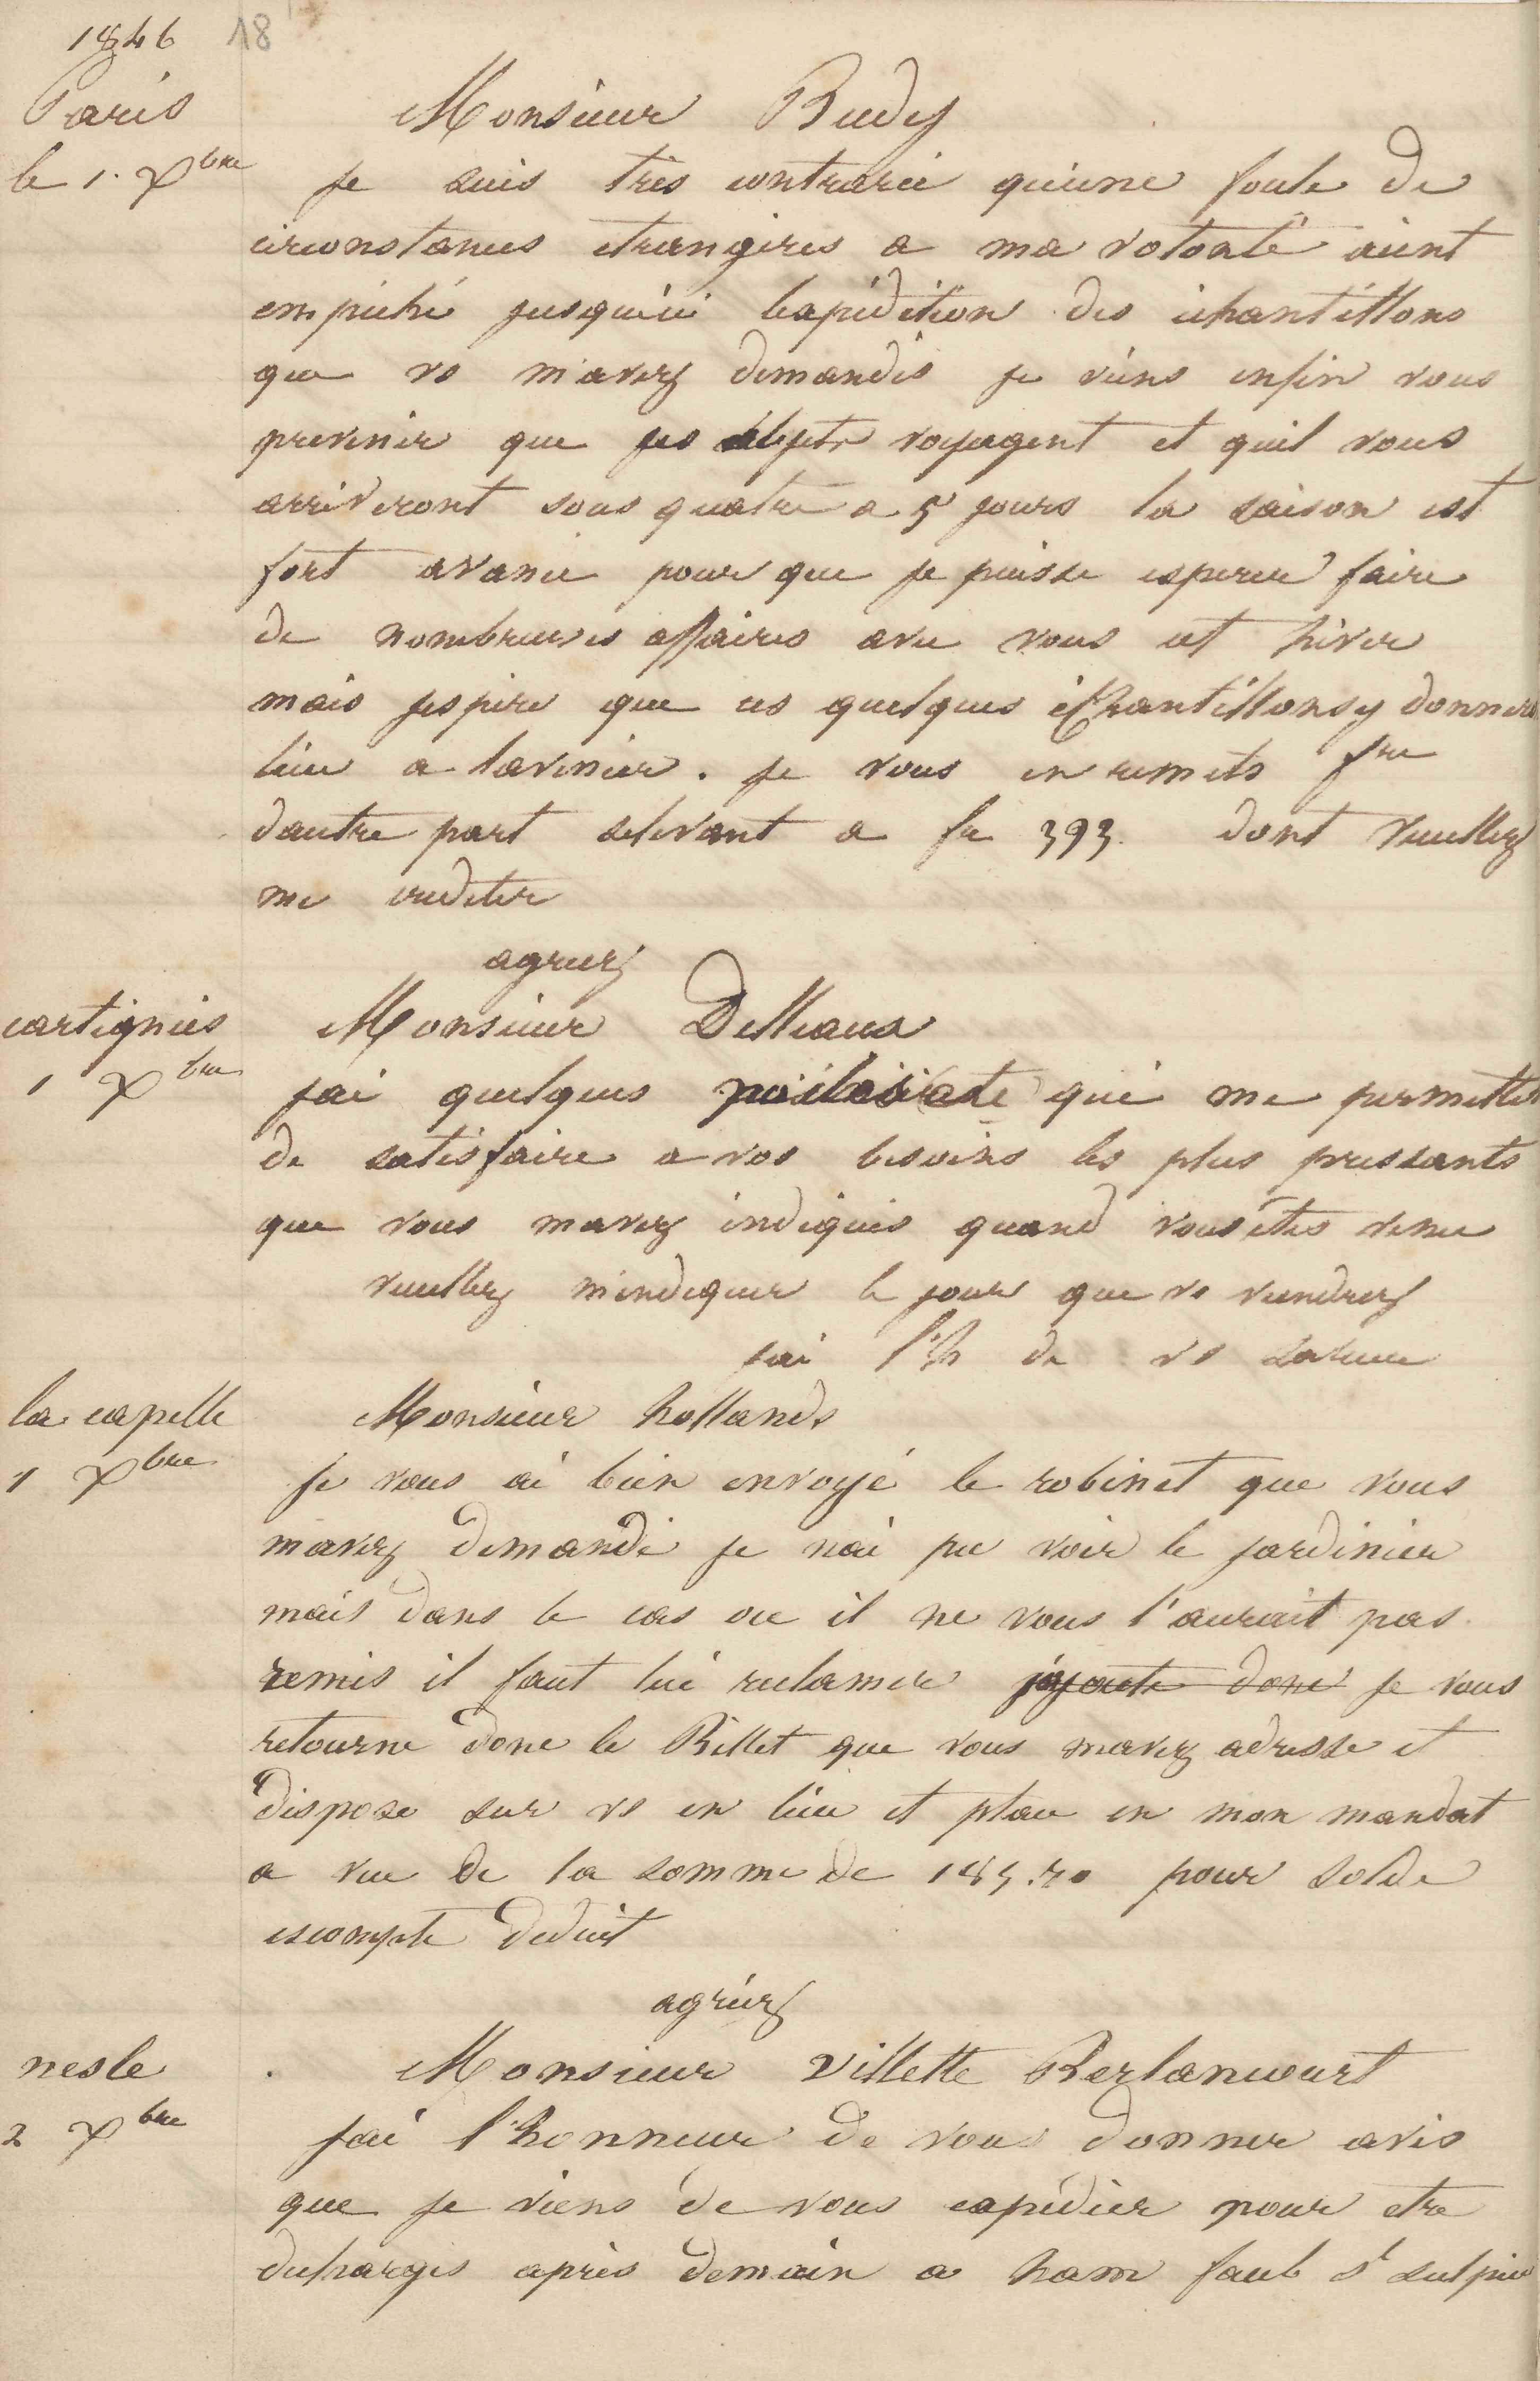 1846 18
Paris
le 1. Xbre
Monsieur Budy
je suis très contrarié qu'une foule de
circonstances etrangères a ma volonté aient
empéché jusqu'ici lexpédition des échantillons
que vs m'avez demandés je viens enfin vous
prevenir que ces objets voyagent et quil vous
arriveront sous quatre a 5 jours la saison est
fort avancé pour que je puisse esperer faire
de nombreuses affaires avec vous cet hiver
mais jespère que ces quelques échantillons y donnero
lieu a lavenir. je vous en remets fre
dautre part selevant a fr 393. dont veuillez
me crediter
agreez
cartignies
1 Xbre
Monsieur Delleaux
jai quelques qui me permetten
de satisfaire a vos besoins les plus pressants
que vous mavez indiqués quand vous étes venu
veuillez m'indiquer le jour que vs viendrez
jai l'h de vs saluer
la capelle
1 Xbre
Monsieur hollande
je vous ai bien envoyé le robinet que vous
mavez demandé je nai pu voir le jardinier
mais dans le cas ou il ne vous l'aurait pas
remis il faut lui reclamer j'ajoute donc je vous
retourne donc le Billet que vous mavez adresse et
dispose sur vs en lieu et place en mon mandat
a vue de la somme de 145.70 pour solde
escompte deduit
agréez
nesle
2 Xbre
Monsieur villette Berlancourt
jai l'honneur de vous donner avis
que je viens de vous expédier pour etre
dechargés après demain a ham faub st sulpice